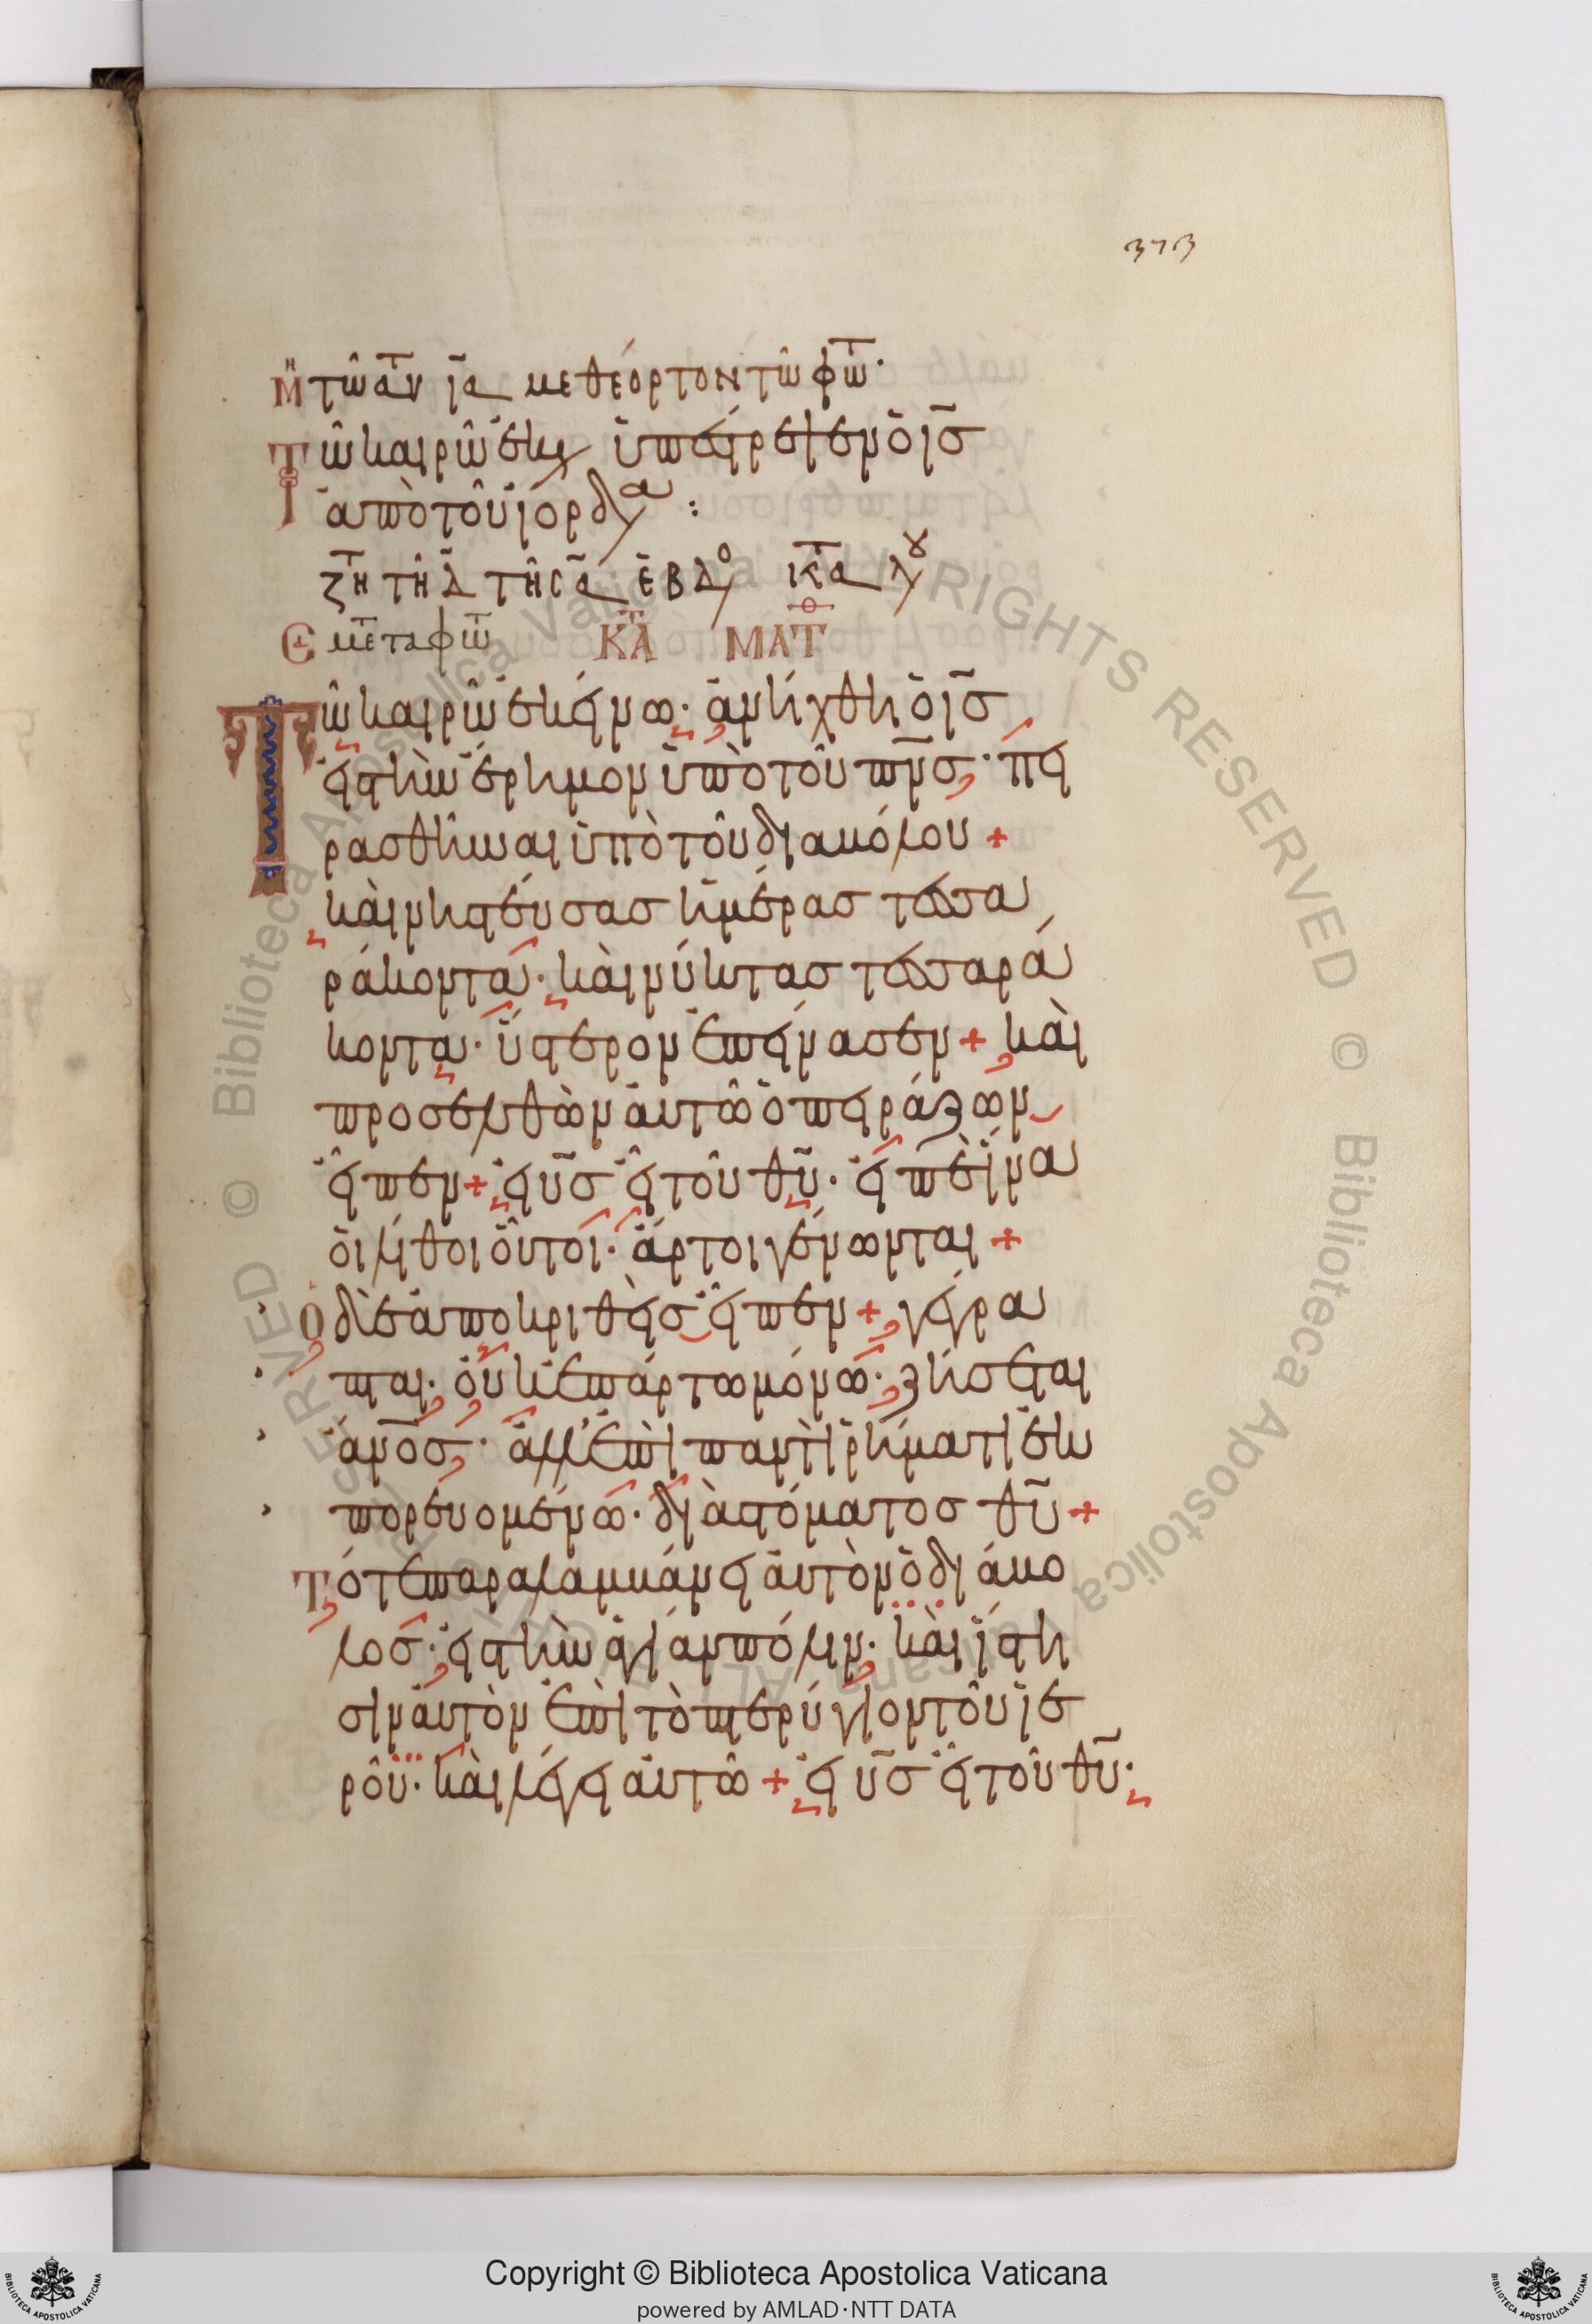 373
Μη τῶ αὐτ ια μεθέορτον τῶ φώτ·
Τῶ καιρῶ ἐκεί ὑπέστρεψεν ὁ ις
ἀπὸ τοῦ ἰορδα :
ζητ τῆ δ τῆς α ἑβδο κατ λου
μετ τα φωτ ΚΑΤ ΜΑΤΘ
Τῶ καιρῶ ἐκείνω· ἀνήχθη ὁ ις
εἰς τὴν ἔρημον ὑπὸ τοῦ πνς· πει
ρασθῆναι ὑπὸ τοῦ διαβόλου +
καὶ νηστεύσας ἡμέρας τεσσα
ράκοντα· καὶ νύκτας τεσσαρά
κοντα· ὕστερον ἐπείνασεν + καὶ
προσελθὼν αὐτῶ ὁ πειράζων
εἶπεν + εἰ υς εἶ τοῦ θυ· εἰπὲ ἵνα
οἱ λίθοι οὗτοι· ἄρτοι γένωνται +
Ὁ δὲ ἀποκριθεὶς εἶπεν + γέγρα
πται· οὐκ ἐπ ἄρτω μόνω· ζήσεται
ανος· ἀλλ' ἐπὶ παντὶ ῥήματι ἐκ
πορευομένω· διὰ στόματος θυ +
Τότε παραλαμβάνει αὐτὸν ὁ διάβο
λος· εἰς τὴν ἁγίαν πόλιν· καὶ ἵστη
σιν αὐτὸν ἐπὶ τὸ πτερύγιον τοῦ ἱε
ροῦ· καὶ λέγει αὐτῶ + εἰ υς εἶ τοῦ θυ·
© Biblioteca Apostolica Vaticana ALL RIGHTS RESERVED
Copyright © Biblioteca Apostolica Vaticana
powered by AMLAD·NTT DATA
BIBLIOTECA APOSTOLICA VATICANA
BIBLIOTECA APOSTOLICA VATICANA